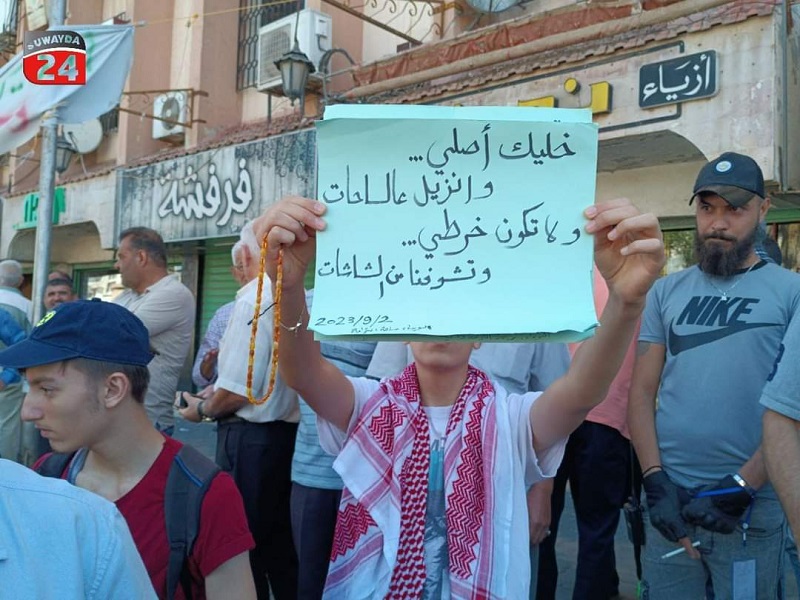 SUWAYDA
24
أزيَاء
فرفشة
خليك أصلي...
وانزيل عالساحات
ولا تكون خرطي...
وتشوفنا من الشاشات
2023/9/2
NIKE